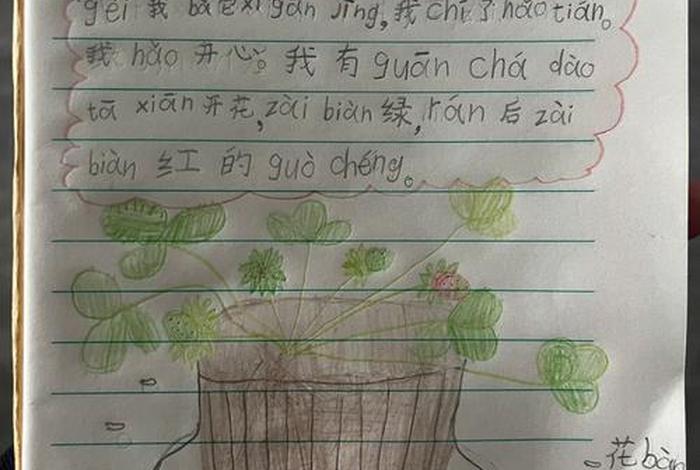 gěi 我 bǎ它xǐ gān jìng,我 chī 了 hǎo tián。
我 hǎo 开心。我 有 guān chá dào
tā xiān 开花,zài biàn 绿,rán 后 zài
biàn 红 的 guò chéng。
花 bàn